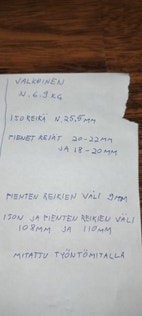 VALKOINEN
N. 6.9 KG
ISO REIKÄ N. 25,5 MM
PIENET REIÄT 20-22 MM
JA 18-20 MM
PIENTEN REIKIEN VÄLI 9MM
ISON JA PIENTEN REIKIEN VÄLI
108 MM JA 110 MM
MITATTU TYÖNTÖMITALLA